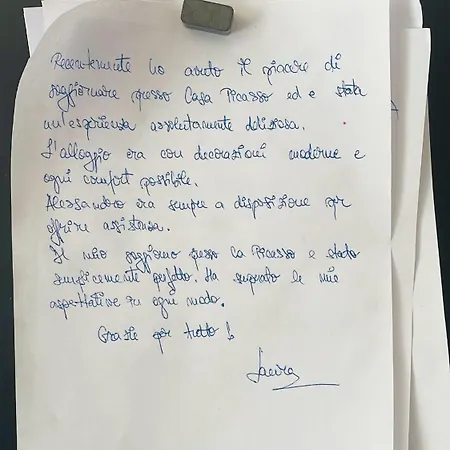 Recentemente ho avuto il piacere di
soggiornare presso Casa Picasso ed e stata
un'esperienza assolutamente deliziosa.
L'alloggio era con decorazioni moderne e
ogni comfort possibile.
Alessandro era sempre a disposizione per
offrire assistenza.
Il mio soggiorno presso Ca Picasso e stato
semplicemente perfetto. Ha superato le mie
aspettative in ogni modo.
Grazie per tutto!
Laura